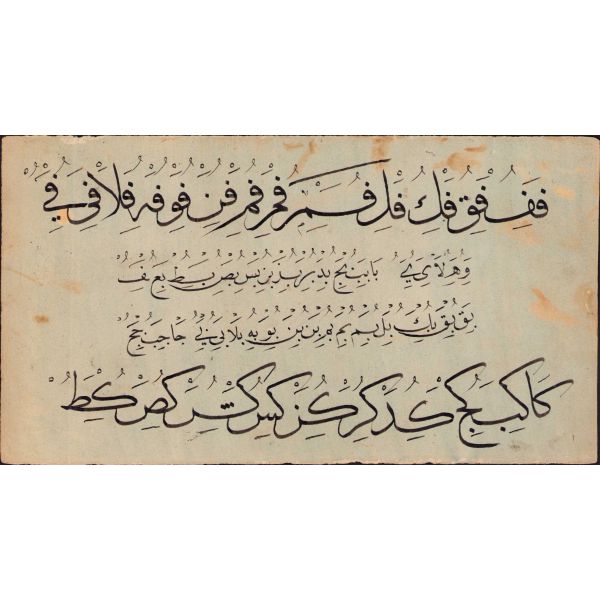 فف فق فك فل فم فمر فمر فم فن فو فه فلا في في
و ه لا ي ي با بب بج بد بر بز بس بص بط بع بف
بق بق بك بل بم بم بمر بن بن بو به بلا بي بي حا حب حج
كا كب كج كد كر كز كس كش كص كط